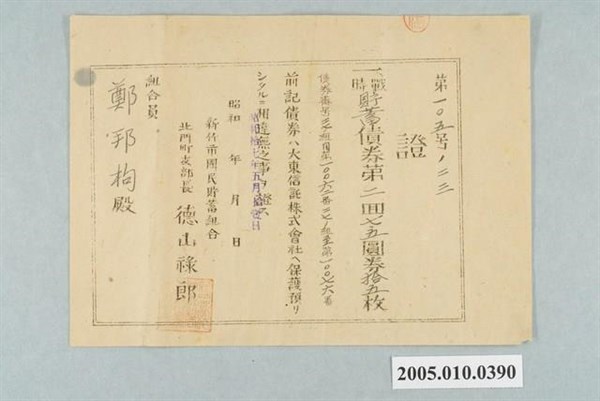 第一〇五号ノ二三
證
一、戰時貯蓄債券第二回七五圓券拾五枚
前記債券ハ大東信託株式會社ヘ保護預リ
シタルニ相違無之事ヲ證ス
昭和 年 月 日
新竹市國民貯蓄組合
北門町支部長 德山祿郎
組合員
鄭邦拘殿
2005.010.0390